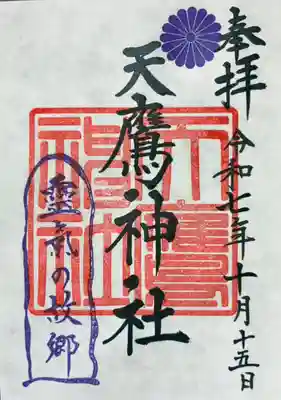 奉拝
令和七年十月十五日
天鷹神社
天鷹神社
靈気の故郷